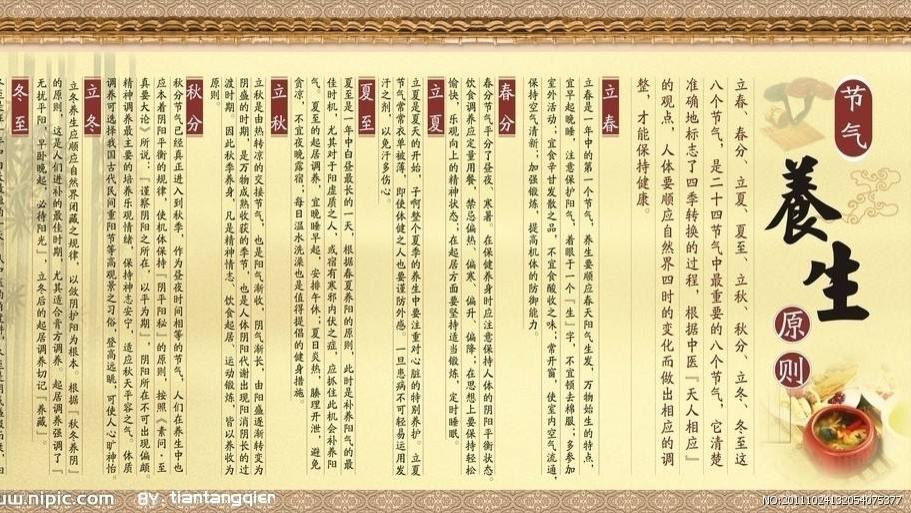 节气
養生
原则
立春、春分、立夏、夏至、立秋、秋分、立冬、冬至这
八个节气，是二十四节气中最重要的八个节气，它清楚
准确地标志了四季转换的过程，根据中医『天人相应』
的观点，人体要顺应自然界四时的变化而做出相应的调
整，才能保持健康。
立春
立春是一年中的第一个节气，养生要顺应春天阳气生发，万物始生的特点，
宜早起晚睡，注意保护阳气，着眼于一个『生』字，不宜顿去棉服；多参加
室外活动；宜食辛甘发散之品，不宜食酸收之味；常开窗，使室内空气流通，
保持空气清新；加强锻炼，提高机体的防御能力。
春分
春分节气平分了昼夜、寒暑。在保健养身时应注意保持人体的阴阳平衡状态。
饮食调养应定量用餐，禁忌偏热、偏寒、偏升、偏降；在思想上要保持轻松
愉快，乐观向上的精神状态；在起居方面要坚持适当锻炼，定时睡眠。
立夏
立夏是夏天的开始，子啊整个夏季的养生中要注重对心脏的特别养护。立夏
节气常常衣单被薄，即使体健之人也要谨防外感，一旦患病不可轻易运用发
汗之剂，以免汗多伤心。
夏至
夏至是一年中白昼最长的一天，根据春夏养阳的原则，此时是补养阳气的最
佳时机，尤其对于阳虚质之人，或宿有寒邪内伏之症，应抓住此机会补养阳
气。夏至的起居调养，宜晚睡早起，安排午休；夏日炎热，腠理开泄，避免
贪凉，不宜夜晚露宿，每日温水洗澡也是值得提倡的健身措施。
立秋
立秋是由热转凉的交接节气，也是阳气渐收，阴气渐长，由阳盛逐渐转变为
阴盛的时期，是万物成熟收获的季节，也是人体阴阳代谢出现阳消阴长的过
渡时期。因此秋季养身，凡是精神情志、饮食起居、运动锻炼，皆以养收为
原则。
秋分
秋分节气已经真正进入到秋季，作为昼夜时间相等的节气，人们在养生中也
应本着阴阳平衡的规律，使机体保持『阴平阳秘』的原则，按照《素问·至
真要大论》所说：『谨察阴阳之所在，以平为期』，阴阳所在不可出现偏颇。
精神调养最主要的培养乐观情绪，保持神志安宁，适应秋天平容之气。体质
调养可选择我国古代民间重阳节等高观景之习俗，登高远眺，可使人心旷神怡
立冬
立冬养生应顺应自然界闭藏之规律，以敛阴护阳为根本，根据『秋冬养阴』
的原则，这是人们进补的最佳时期，尤其适合膏方调养，起居调养强调了『
无扰乎阳，早卧晚起，必待阳光』，立冬后的起居调养切记『养藏』
冬至
www.nipic.com
BY: tiantangqier
NO:20111024132054075377